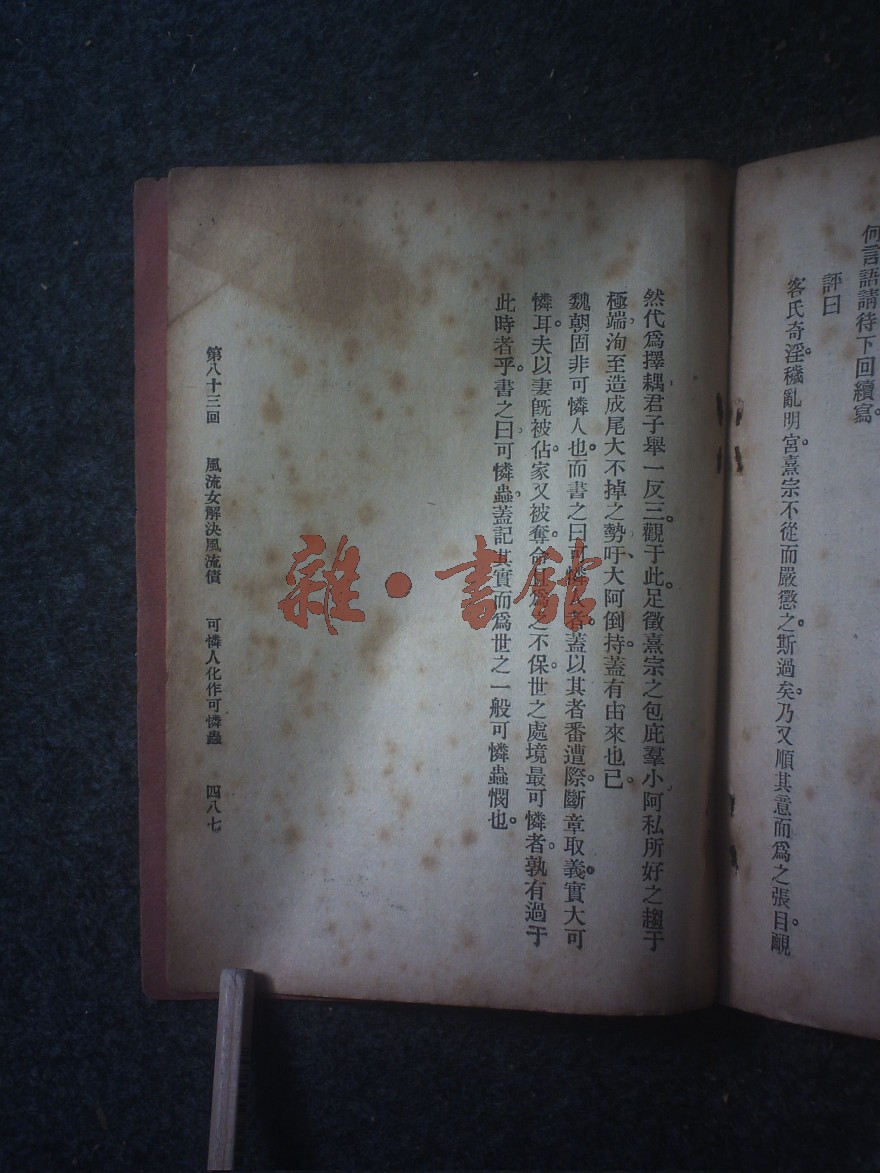 何言語請待下回續寫。
評曰
客氏奇淫。穢亂明宮。熹宗不從而嚴懲之。斯過矣。乃又順其意而爲之張目。靦
然代爲擇耦。君子舉一反三。觀于此。足徵熹宗之包庇羣小。阿私所好之趨于
極端。洵至造成尾大不掉之勢。吁、大阿倒持。蓋有由來也已。
魏朝固非可憐人也。而書之曰可憐人者。蓋以其者番遭際。斷章取義。實大可
憐耳。夫以妻旣被佔。家又被奪。命且爲之不保。世之處境最可憐者。孰有過于
此時者乎。書之曰可憐蟲。蓋記其實而爲世之一般可憐蟲憫也。
第八十三回 風流女解決風流債 可憐人化作可憐蟲 四八七
雜·書館